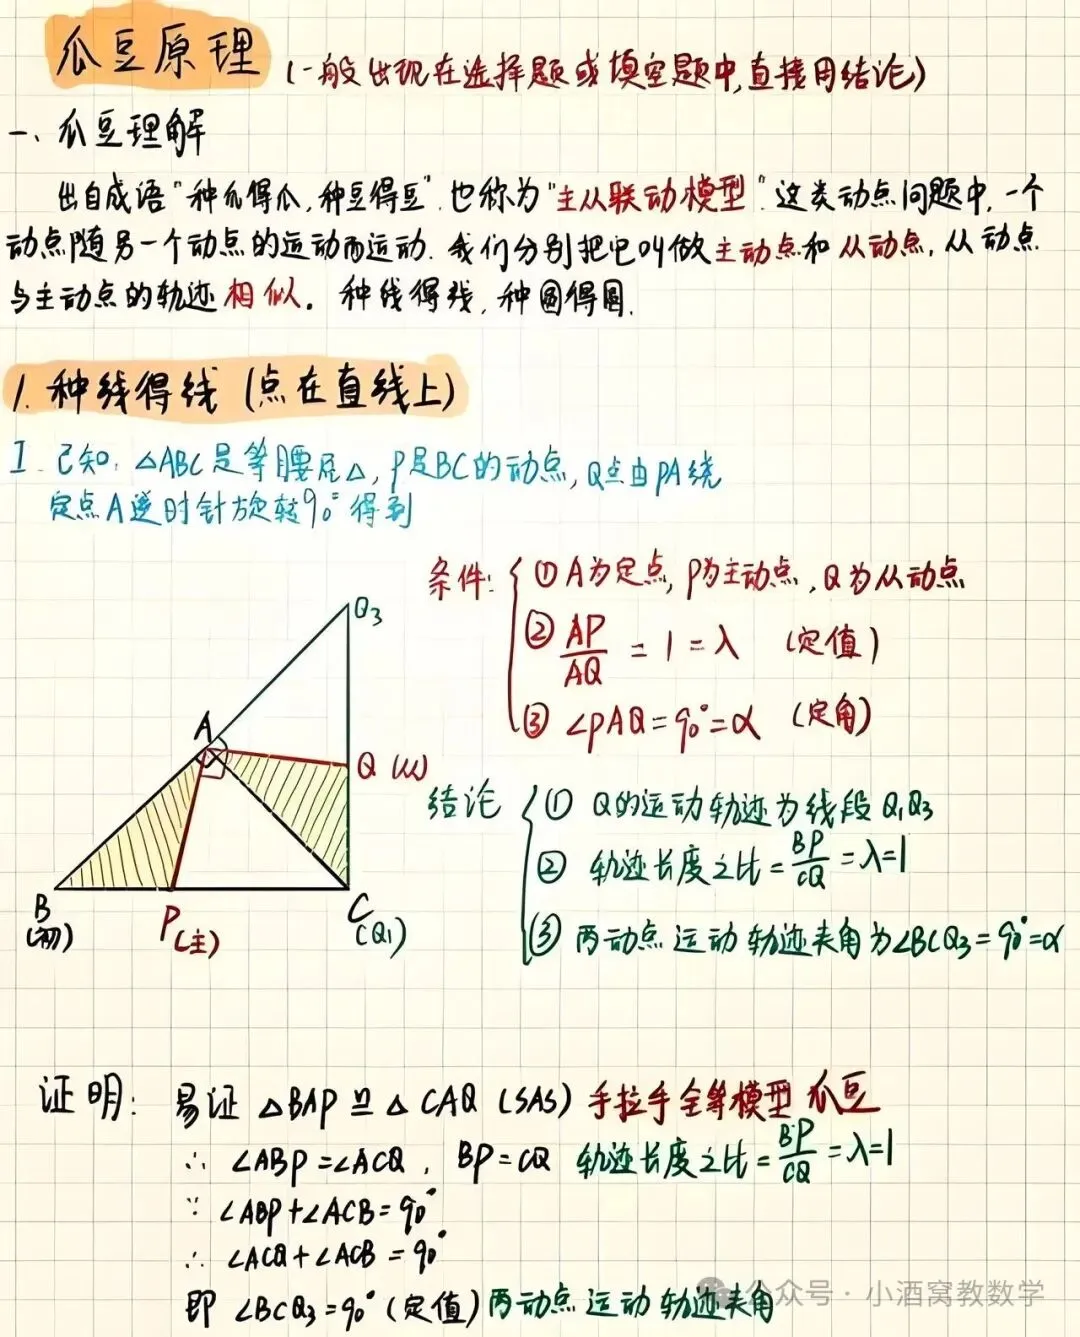 瓜豆原理 (一般出现在选择题或填空题中,直接用结论)
一、瓜豆理解
出自成语"种瓜得瓜,种豆得豆".也称为"主从联动模型".这类动点问题中,一个
动点随另一个动点的运动而运动.我们分别把它叫做主动点和从动点,从动点
与主动点的轨迹相似。种线得线,种圆得圆.
1.种线得线(点在直线上)
I.已知:△ABC是等腰Rt△,P是BC的动点,Q点由PA绕
定点A逆时针旋转90°得到
条件: ①A为定点,P为主动点,Q为从动点
②AP/AQ=1=λ (定值)
③∠PAQ=90°=α (定角)
Q3
A
Q(从)
B
(初)
P(主)
C
(Q1)
结论 ①Q的运动轨迹为线段Q1Q3
②轨迹长度之比=BP/CQ=λ=1
③两动点运动轨迹夹角为∠BCQ3=90°=α
证明: 易证△BAP≌△CAQ(SAS)手拉手全等模型 瓜豆
∴ ∠ABP=∠ACQ, BP=CQ 轨迹长度之比=BP/CQ=λ=1
∵ ∠ABP+∠ACB=90°
∴ ∠ACQ+∠ACB=90°
即 ∠BCQ3=90°(定值)两动点运动轨迹夹角
公众号·小酒窝教数学